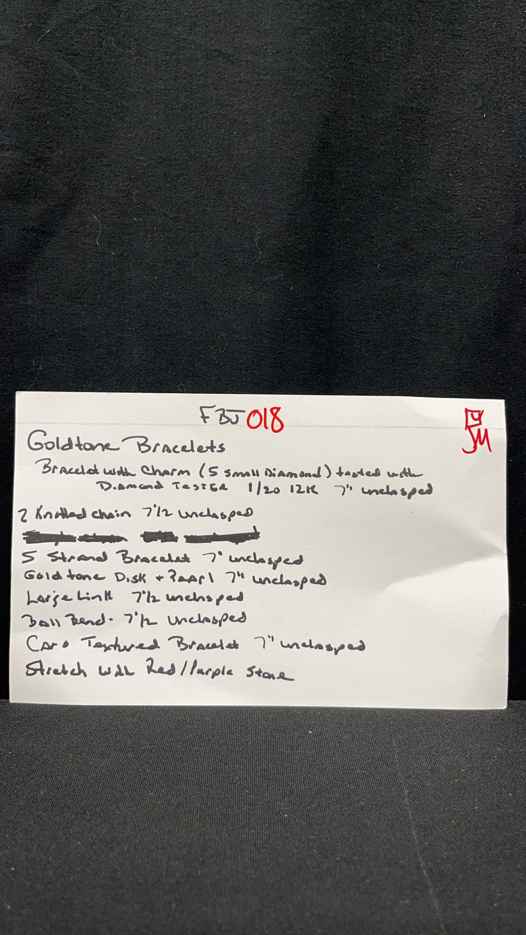 FBJ 018
JM
Goldtone Bracelets
Bracelet with Charm (5 small Diamond) tested with
Diamond Tester 1/20 12K 7" unclasped
2 Knotted chain 7 1/2 unclasped
5 Strand Bracelet 7" unclasped
Gold tone Disk + Pearl 7" unclasped
Large Link 7 1/2 unclasped
Ball Bead - 7 1/2 unclasped
Caro Textured Bracelet 7" unclasped
Stretch with Red/Purple Stone